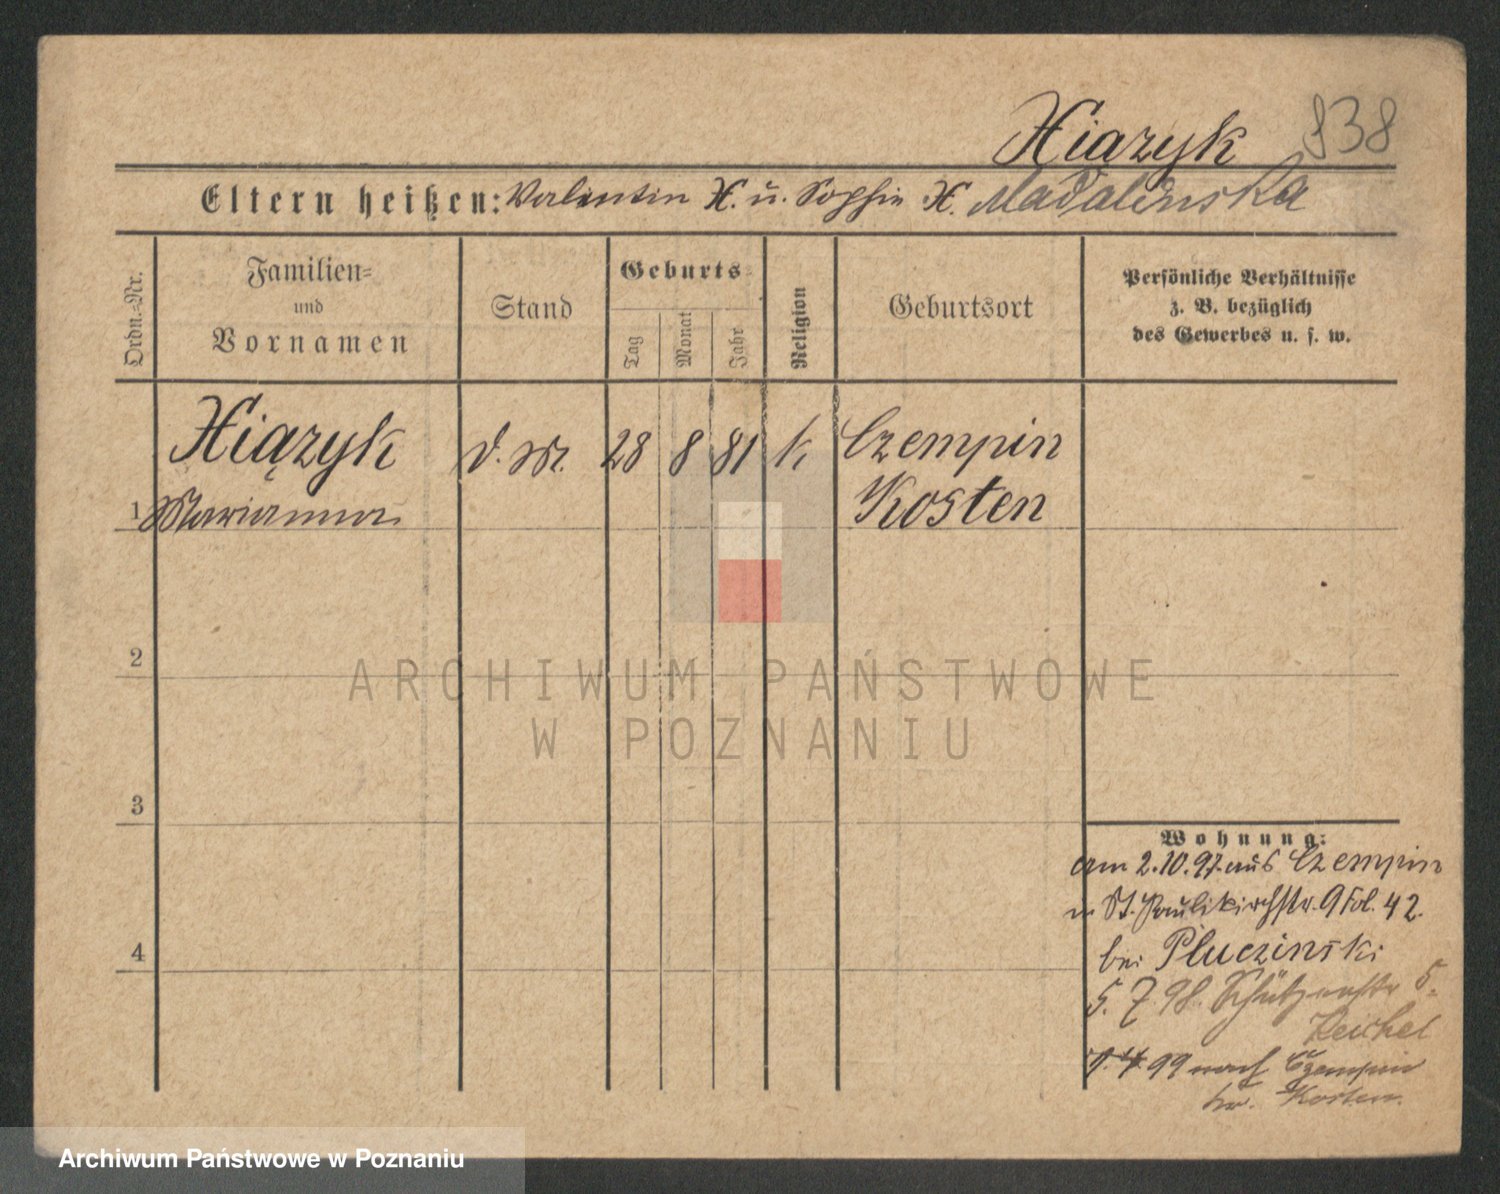 Xiązyk 838
Eltern heißen: Valentin X. u. Sophie X. Madalinska
Ordn.=Nr.
Familien=
und
Vornamen
Stand
Geburts=
Tag
Monat
Jahr
Religion
Geburtsort
Persönliche Verhältnisse
z. B. bezüglich
des Gewerbes u. s. w.
Xiązyk d. M. 28 8 81 k. Czempin
1 Marianna Kosten
2
ARCHIWUM PAŃSTWOWE
W POZNANIU
3
Wohnung:
am 2.10.97. aus Czempin
n St. Paulikirchstr. 9 Fol. 42.
4
bei Pluczinski
5. 7 98. Schützenstr 5.
Reichel
4. 99 nach Czempin
kr. Kosten.
Archiwum Państwowe w Poznaniu